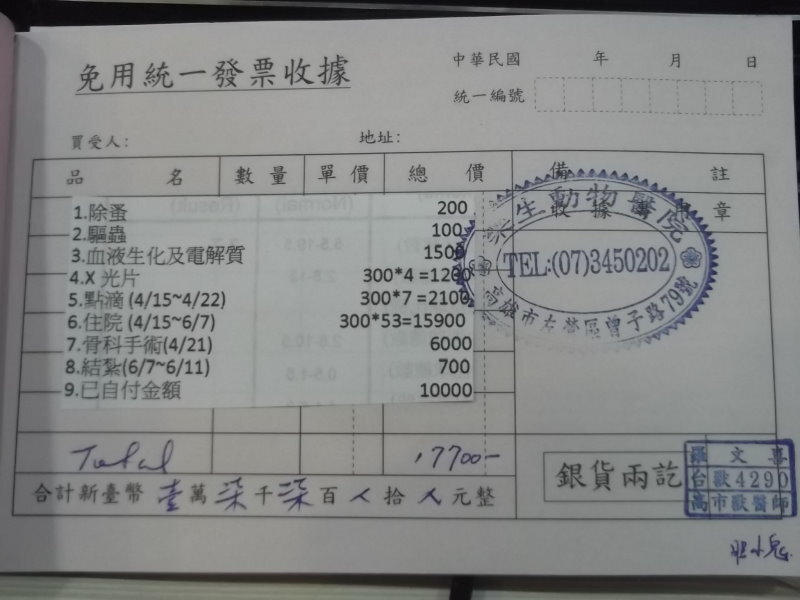 免用統一發票收據
中華民國 年 月 日
統一編號
買受人: 地址:
品 名 數量 單價 總價 備 註
收據專用章
1.除蚤 200
2.驅蟲 100
3.血液生化及電解質 1500
4.X 光片 300*4 =1200
5.點滴 (4/15~4/22) 300*7 =2100
6.住院 (4/15~6/7) 300*53=15900
7.骨科手術(4/21) 6000
8.結紮(6/7~6/11) 700
9.已自付金額 10000
生動物醫院
TEL:(07)3450202
高雄市左營區曾子路79號
Total 17700-
合計新臺幣 壹萬柒千柒百 拾 元整
銀貨兩訖
羅文喜
台獸4290
高市獸醫師